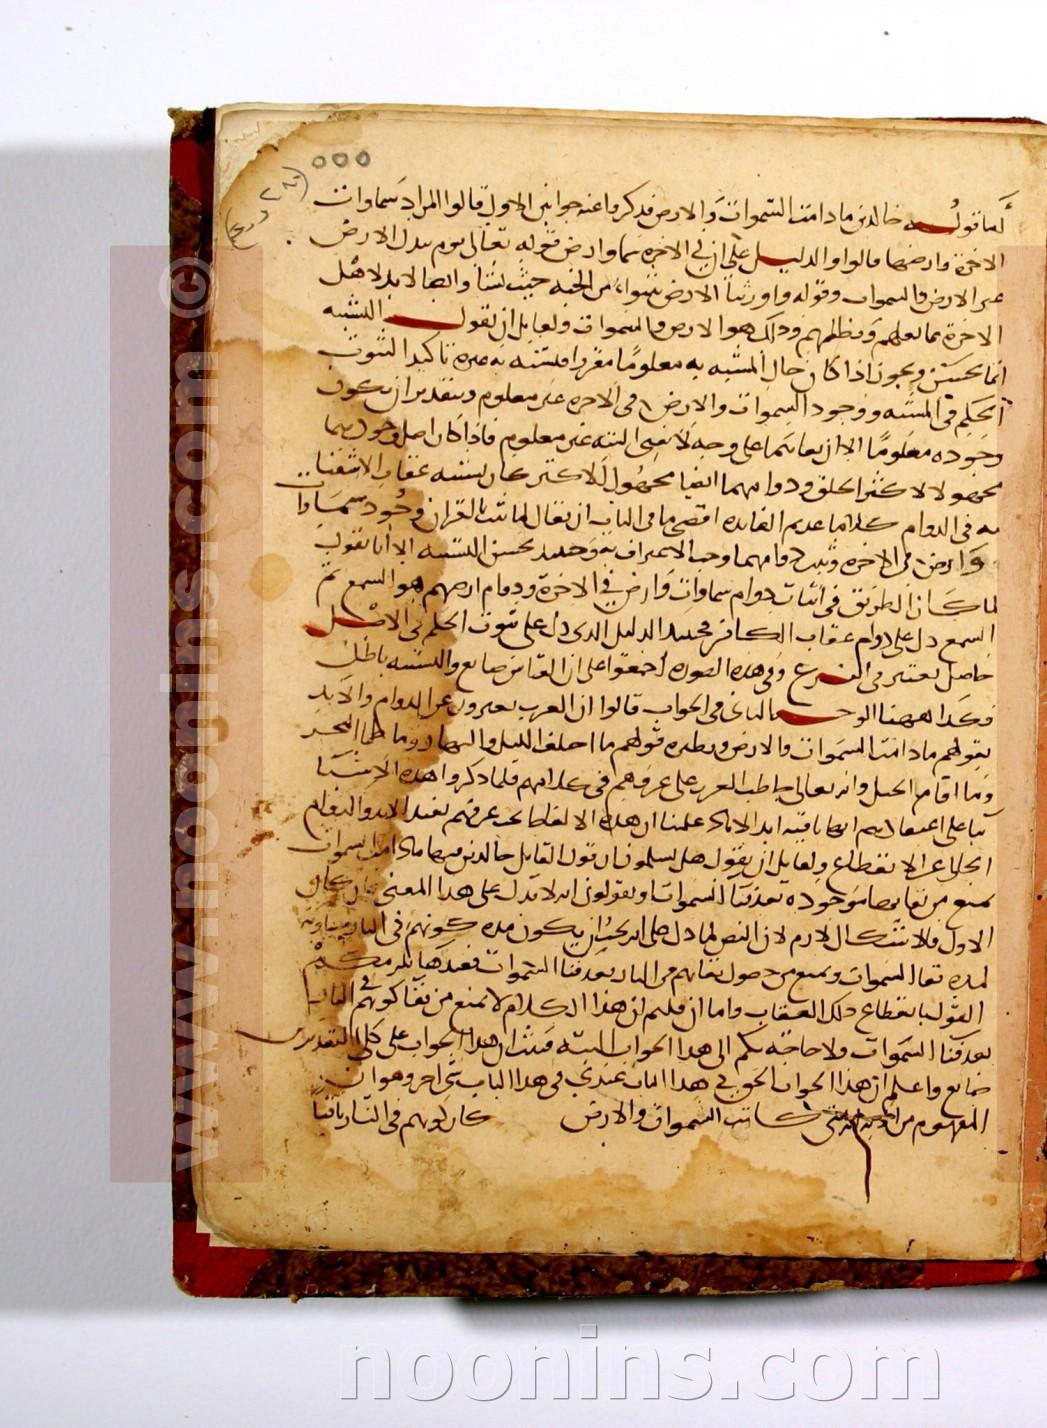 أما قوله خالدين ما دامت السموات والارض فذكروا عنه جوابين الاول قالوا المراد سماوات
الاخرة وارضها قالوا والدليل على ان في الاخرة سما وارض قوله تعالى يوم تبدل الارض
غير الارض والسموات وقوله واورثنا الارض نتبوا من الجنة حيث نشا وايضا لا بد لاهل
الاخرة مما يقلهم ويظلهم وذلك هو الارض والسموات ولقايل ان يقول التشبيه
انما يحسن ويجوز اذا كان حال المشبه به معلوما مقررا فيشبه به غيره تاكيدا لثبوت
الحكم في المشبه ووجود السموات والارض في الاخرة غير معلوم وبتقدير ان يكون
وجوده معلوما الا ان بقاءهما على وجه لا يفنى البتة غير معلوم فاذا كان اصل وجودهما
مجهولا لاكثر الخلق ودوامهما ايضا مجهول للاكثر كان تشبيه عقاب الاشقيا
به في الدوام كلاما عديم الفايدة اقصى ما في الباب ان يقال لما ثبت بالقران وجود سموات
وارض في الاخرة وثبت دوامهما وجب الاعتراف به وحينيذ يحسن التشبيه الا انا نقول
لما كان الطريق في اثبات دوام سماوات وارض في الاخرة ودوام ارضهم هو السمع ثم
السمع دل على دوام عقاب الكافر فحينيذ الدليل الذي دل على ثبوت الحكم في الاصل
حاصل بعينه في الفرع وفي هذه الصورة اجمعوا على ان القياس ضايع والتشبيه باطل
فكذا ههنا الوجه الثاني في الجواب قالوا ان العرب يعبرون عن الدوام والابد
بقولهم ما دامت السموات والارض ونظيره قولهم ما اختلف الليل والنهار وما طما البحر
وما اقام الجبل وانه تعالى خاطب العرب على عرفهم في كلامهم فلما ذكروا هذه الاشيا
بنا على اعتقادهم انها باقية ابد الاباد علمنا ان هذه الالفاظ بحسب عرفهم تفيد الابد والدوام
الخالي عن الانقطاع ولقايل ان يقول هل تسلمون ان قول القايل خالدين فيها ما دامت السموات
يمنع من بقايها موجودة بعد فنا السموات او تقولون انه لا يدل على هذا المعنى فان كان
الاول فالاشكال لازم لان النص لما دل على انه يجب ان يكون مدة كونهم في النار مساوية
لمدة بقا السموات ويمنع من حصول بقايهم في النار بعد فنا السموات فعندها يلزمكم
القول بانقطاع ذلك العقاب واما ان قلتم ان هذا الكلام لا يمنع من بقا كونهم في النار
بعد فنا السموات فلا حاجة بكم الى هذا الجواب البتة فثبت ان هذا الجواب على كلي التقديرين
ضايع واعلم ان هذا الجواب الحق في هذا الباب عندي في هذا الباب شي اخر وهو ان
المفهوم من الاية انه متى كانت السموات والارض كان كونهم في النار باقيا
noonins.com
www.noonins.com©